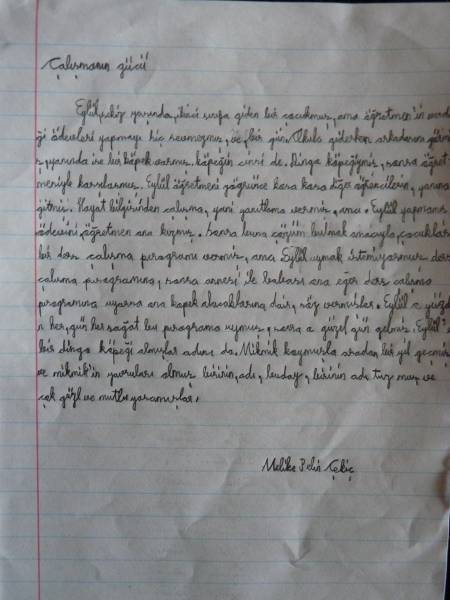 Çalışmanın gücü
Eylül, yarında, ikici sınıfa giden bir cocukmuş, ama öğretmen'in verdi
ği ödevleri yapmayı hiç sevmezmiş, ve, bir gün, giderken arkadaşını görmü
ş, yanında ise bir köpek varmış, köpeğin cinsi de. Dingo köpeğiymiş, sonra öğret
meniyle karşılaşmış. Eylül öğretmeni görünce koşa koşa diğer öğrencilerin, yanına
gitmiş. Hayat bilgisinden çalışma, yani vermiş, ama. Eylül yapmamış
ödevini, öğretmen ona kızmış. Sonra buna çözüm bulmak amacıyla, çocuklara
bir ders çalışma programı vermiş, ama Eylül uymak istemiyormuş ders
çalışma programına, sonra annesi ile babası ona eğer ders çalışma
programına uyarsa ona köpek alacaklarına dair, söz vermişler. Eylül o yüzde
n her, gün her saat bu programa uymuş, sonra o güzel gün gelmiş. Eylül'e
bir dingo köpeği almışlar adını da. Miknik koymuşlar aradan bir yıl geçmiş
ve miknik'in yavruları olmuş birinin, adı, buğday, birinin adı tuz muş ve
çok ve mutlu yaşamışlar.
Melike Pelin